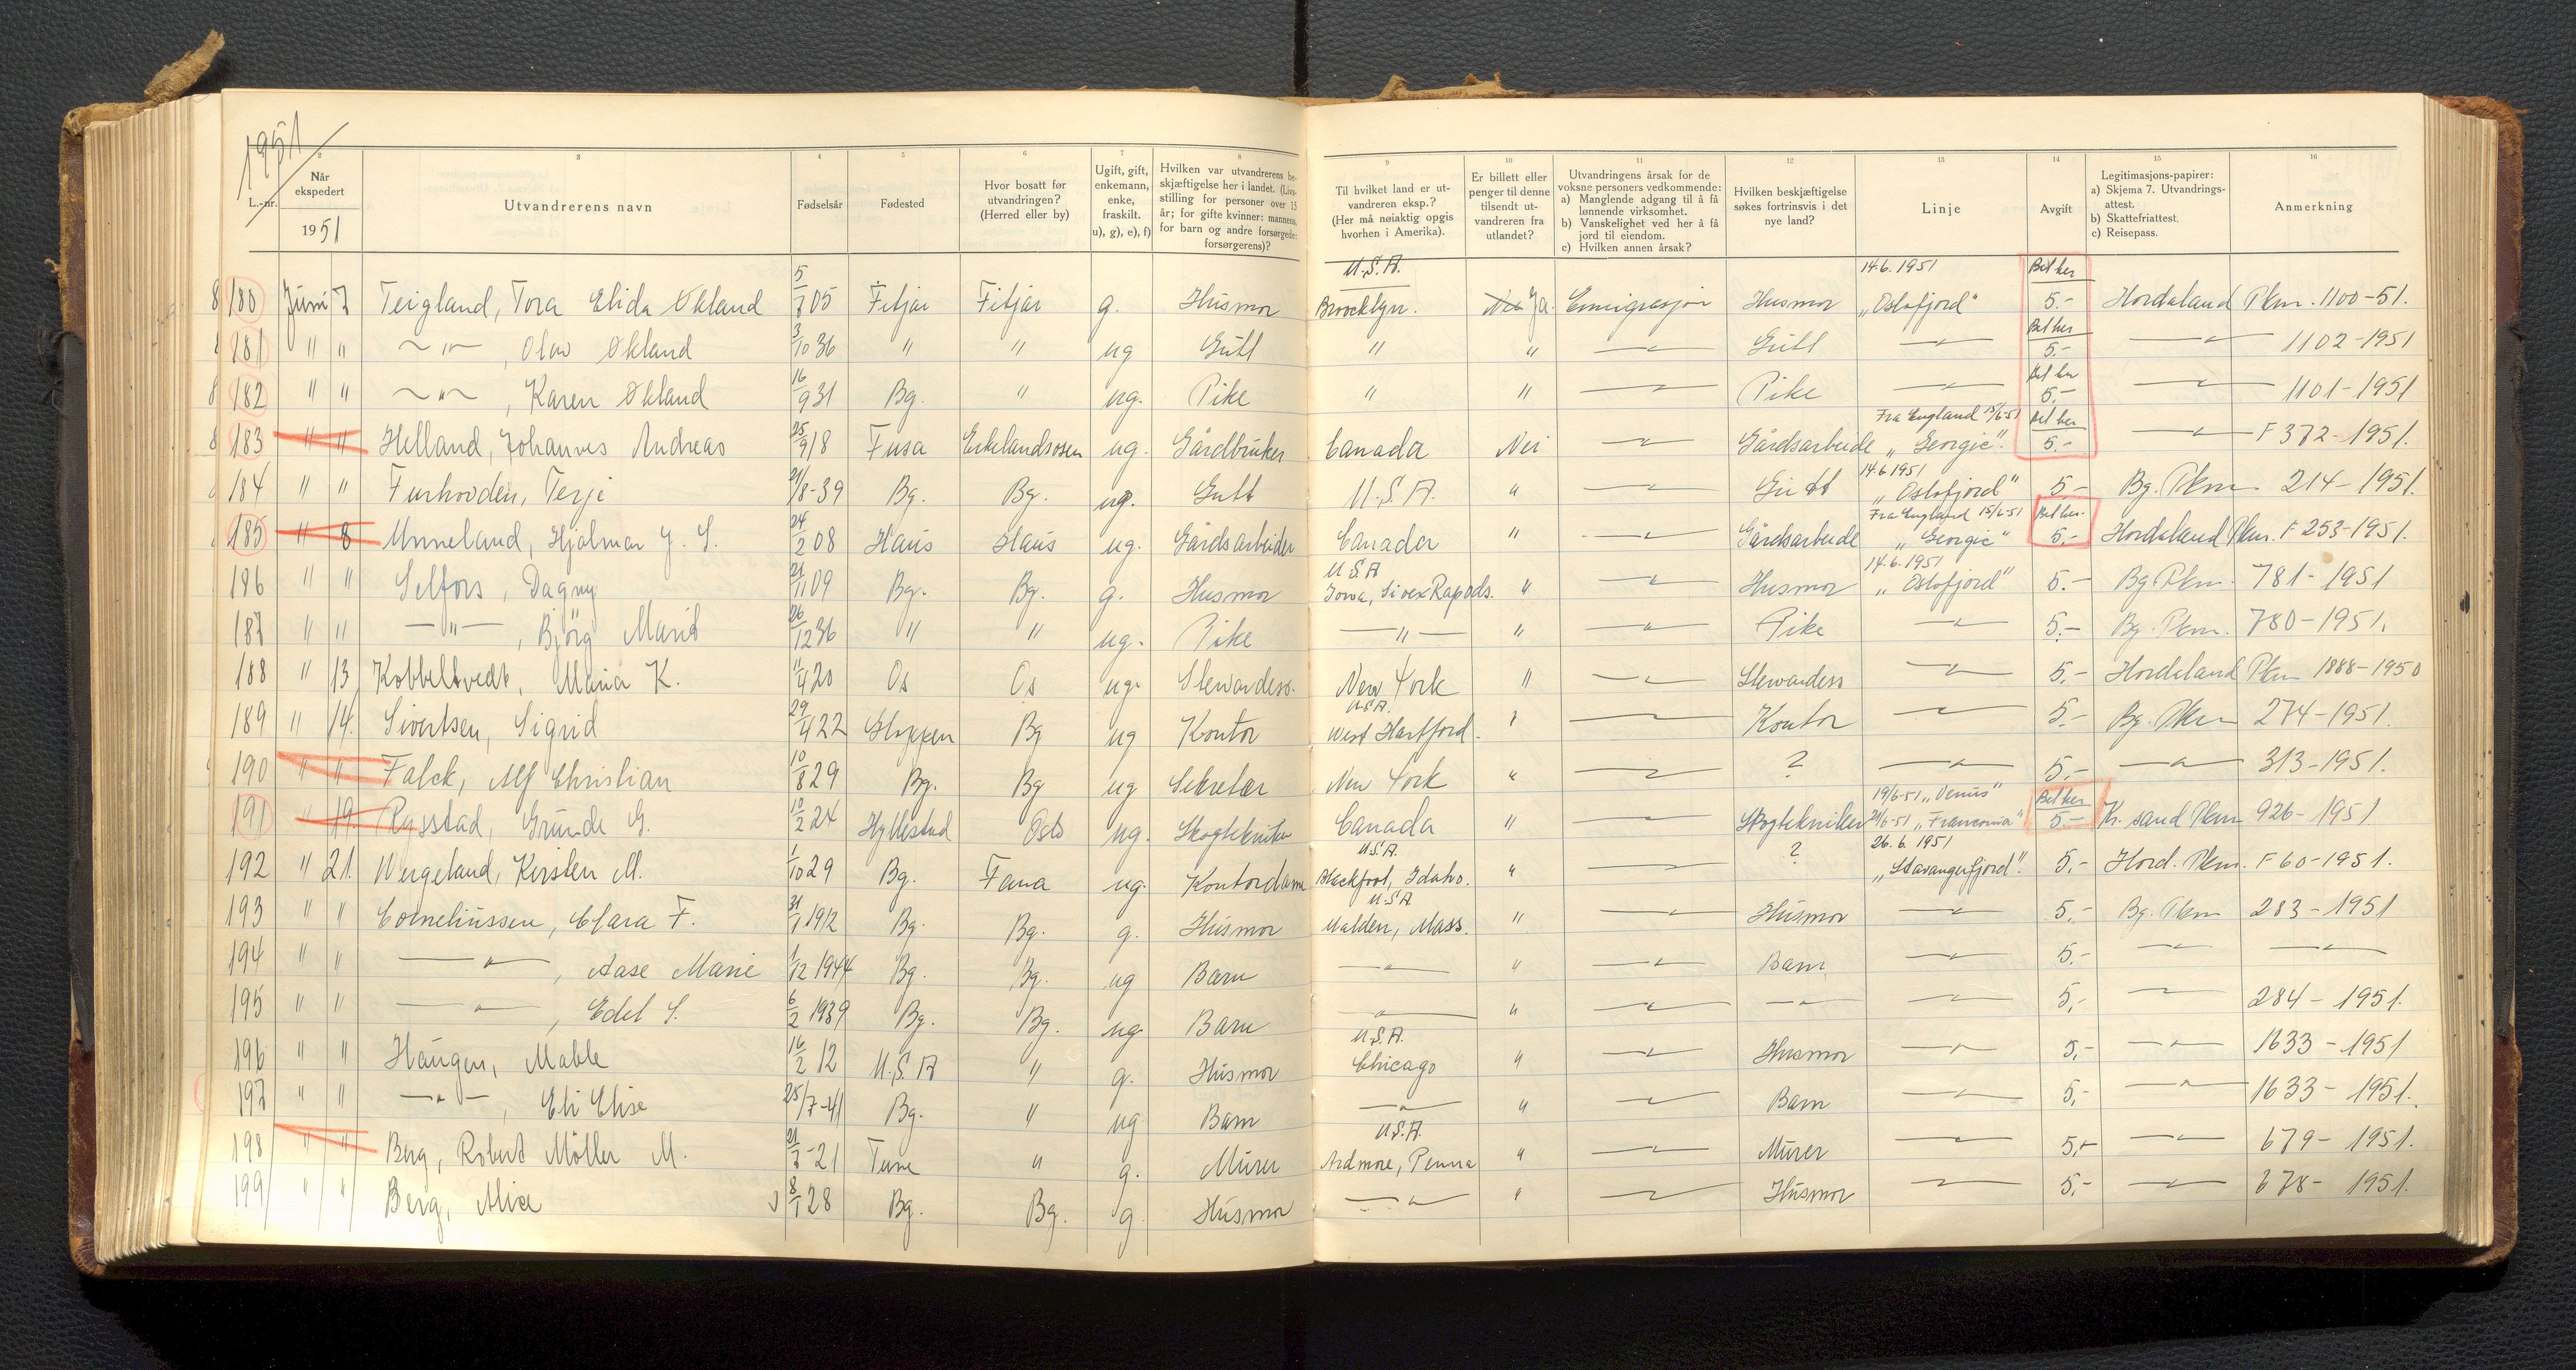 1951
2 3 4 5 6 7 8 9 10 11 12 13 14 15 16
L.-nr.
Når ekspedert 1951
Utvandrerens navn
Fødselsår
Fødested
Hvor bosatt før utvandringen? (Herred eller by)
Ugift, gift, enkemann, enke, fraskilt. u), g), e), f)
Hvilken var utvandrerens beskjæftigelse her i landet. (Livsstilling for personer over 15 år; for gifte kvinner: mannens, for barn og andre forsørgede: forsørgerens)?
Til hvilket land er utvandreren eksp.? (Her må nøiaktig opgis hvorhen i Amerika).
Er billett eller penger til denne tilsendt utvandreren fra utlandet?
Utvandringens årsak for de voksne personers vedkommende: a) Manglende adgang til å få lønnende virksomhet. b) Vanskelighet ved her å få jord til eiendom. c) Hvilken annen årsak?
Hvilken beskjæftigelse søkes fortrinsvis i det nye land?
Linje
Avgift
Legitimasjons-papirer: a) Skjema 7. Utvandrings-attest. b) Skattefriattest. c) Reisepass.
Anmerkning
180 Juni 7 Teigland, Tora Elida Økland 5/8 05 Fitjar Fitjar g. Husmor U.S.A. Broocklyn. Ja Emigrasjon Husmor 14.6.1951 „Oslofjord" Bet her 5.- Hordaland Pkm. 1100-51.
181 " " —"— , Olav Økland 3/10 36 " " ug Gutt " " —"— Gutt —"— Bet her 5.- —"— 1102-1951
182 " " —"— , Karen Økland 16/9 31 Bg. " ug. Pike " " —"— Pike —"— Bet her 5.- —"— 1101-1951
183 " " Helland, Johannes Andreas 25/9 18 Fusa Eikelandsosen ug. Gårdbruker Canada Nei —"— Gårdsarbeide Fra England 15/6-51 „Georgic". Bet her 5.- —"— F 372-1951.
184 " " Furhovden, Terje 21/8-39 Bg. Bg. ug. Gutt U.S.A. " —"— Gutt 14.6.1951 „Oslofjord" 5.- Bg. Pkm 214-1951.
185 " 8 Unneland, Hjalmar J. S. 24/2 08 Haus Haus ug. Gårdsarbeider Canada " —"— Gårdsarbeide Fra England 15/6-51 „Georgic" Bet her. 5.- Hordaland Pkm. F 253-1951.
186 " " Selfors, Dagny 21/11 09 Bg. Bg. g. Husmor U.S.A Iowa, Sioex Rapods. " —"— Husmor 14.6.1951 „Oslofjord" 5.- Bg Pkm. 781-1951
187 " " —"— , Bjørg Marit 26/12 36 " " ug. Pike —"— " —"— Pike —"— 5.- Bg. Pkm. 780-1951.
188 " 13 Kobbeltvedt, Maria K. 11/4 20 Os Os ug. Stewardess. New York " —"— Stewardess —"— 5.- Hordaland Pkm 1888-1950
189 " 14. Sivertsen, Sigrid 29/4 22 Gloppen Bg ug Kontor U.S.A. West Hartford. " —"— Kontor —"— 5.- Bg. Pkm 274-1951.
190 " " Falck, Alf Christian 10/8 29 Bg. Bg ug Sekretær New York " —"— ? —"— 5.- —"— 313-1951.
191 " 19. Rysstad, Grunde G. 10/2 24 Hyllestad Oslo ug. Skogtekniker Canada " —"— Skogtekniker 19/6-51 „Venus" 21/6-51 „Franconia" Bet her 5.- Kr. sand Pkm 926-1951
192 " 21. Wergeland, Kirsten M. 1/10 29 Bg. Fana ug. Kontordame U.S.A. Blackfoot, Idaho. " —"— ? 26.6.1951 „Stavangerfjord". 5,- Hord. Pkm. F 60-1951.
193 " " Corneliussen, Clara F. 31/1 1912 Bg. Bg. g. Husmor U.S.A. Malden, Mass. " —"— Husmor —"— 5,- Bg. Pkm 283-1951
194 " " —"— , Aase Marie 1/12 1944 Bg. Bg. ug Barn —"— " —"— Barn —"— 5.- —"— —"—
195 " " —"— , Edel S. 6/2 1939 Bg. Bg. ug. Barn —"— " —"— —"— —"— 5,- —"— 284-1951.
196 " " Haugen, Mable 16/2 12 U.S.A " g. Husmor U.S.A. Chicago " —"— Husmor —"— 5,- —"— 1633-1951
197 " " —"— , Eli Elise 25/7-41 Bg. " ug Barn —"— " —"— Barn —"— 5,- —"— 1633-1951.
198 " " Berg, Robert Møller M. 21/7-21 Tune " g. Murer U.S.A. Ardmore, Penna " —"— Murer —"— 5,- —"— 679-1951.
199 " " Berg, Alice 8/1 28 Bg. Bg. g Husmor —"— " —"— Husmor —"— 5,- —"— 678-1951.